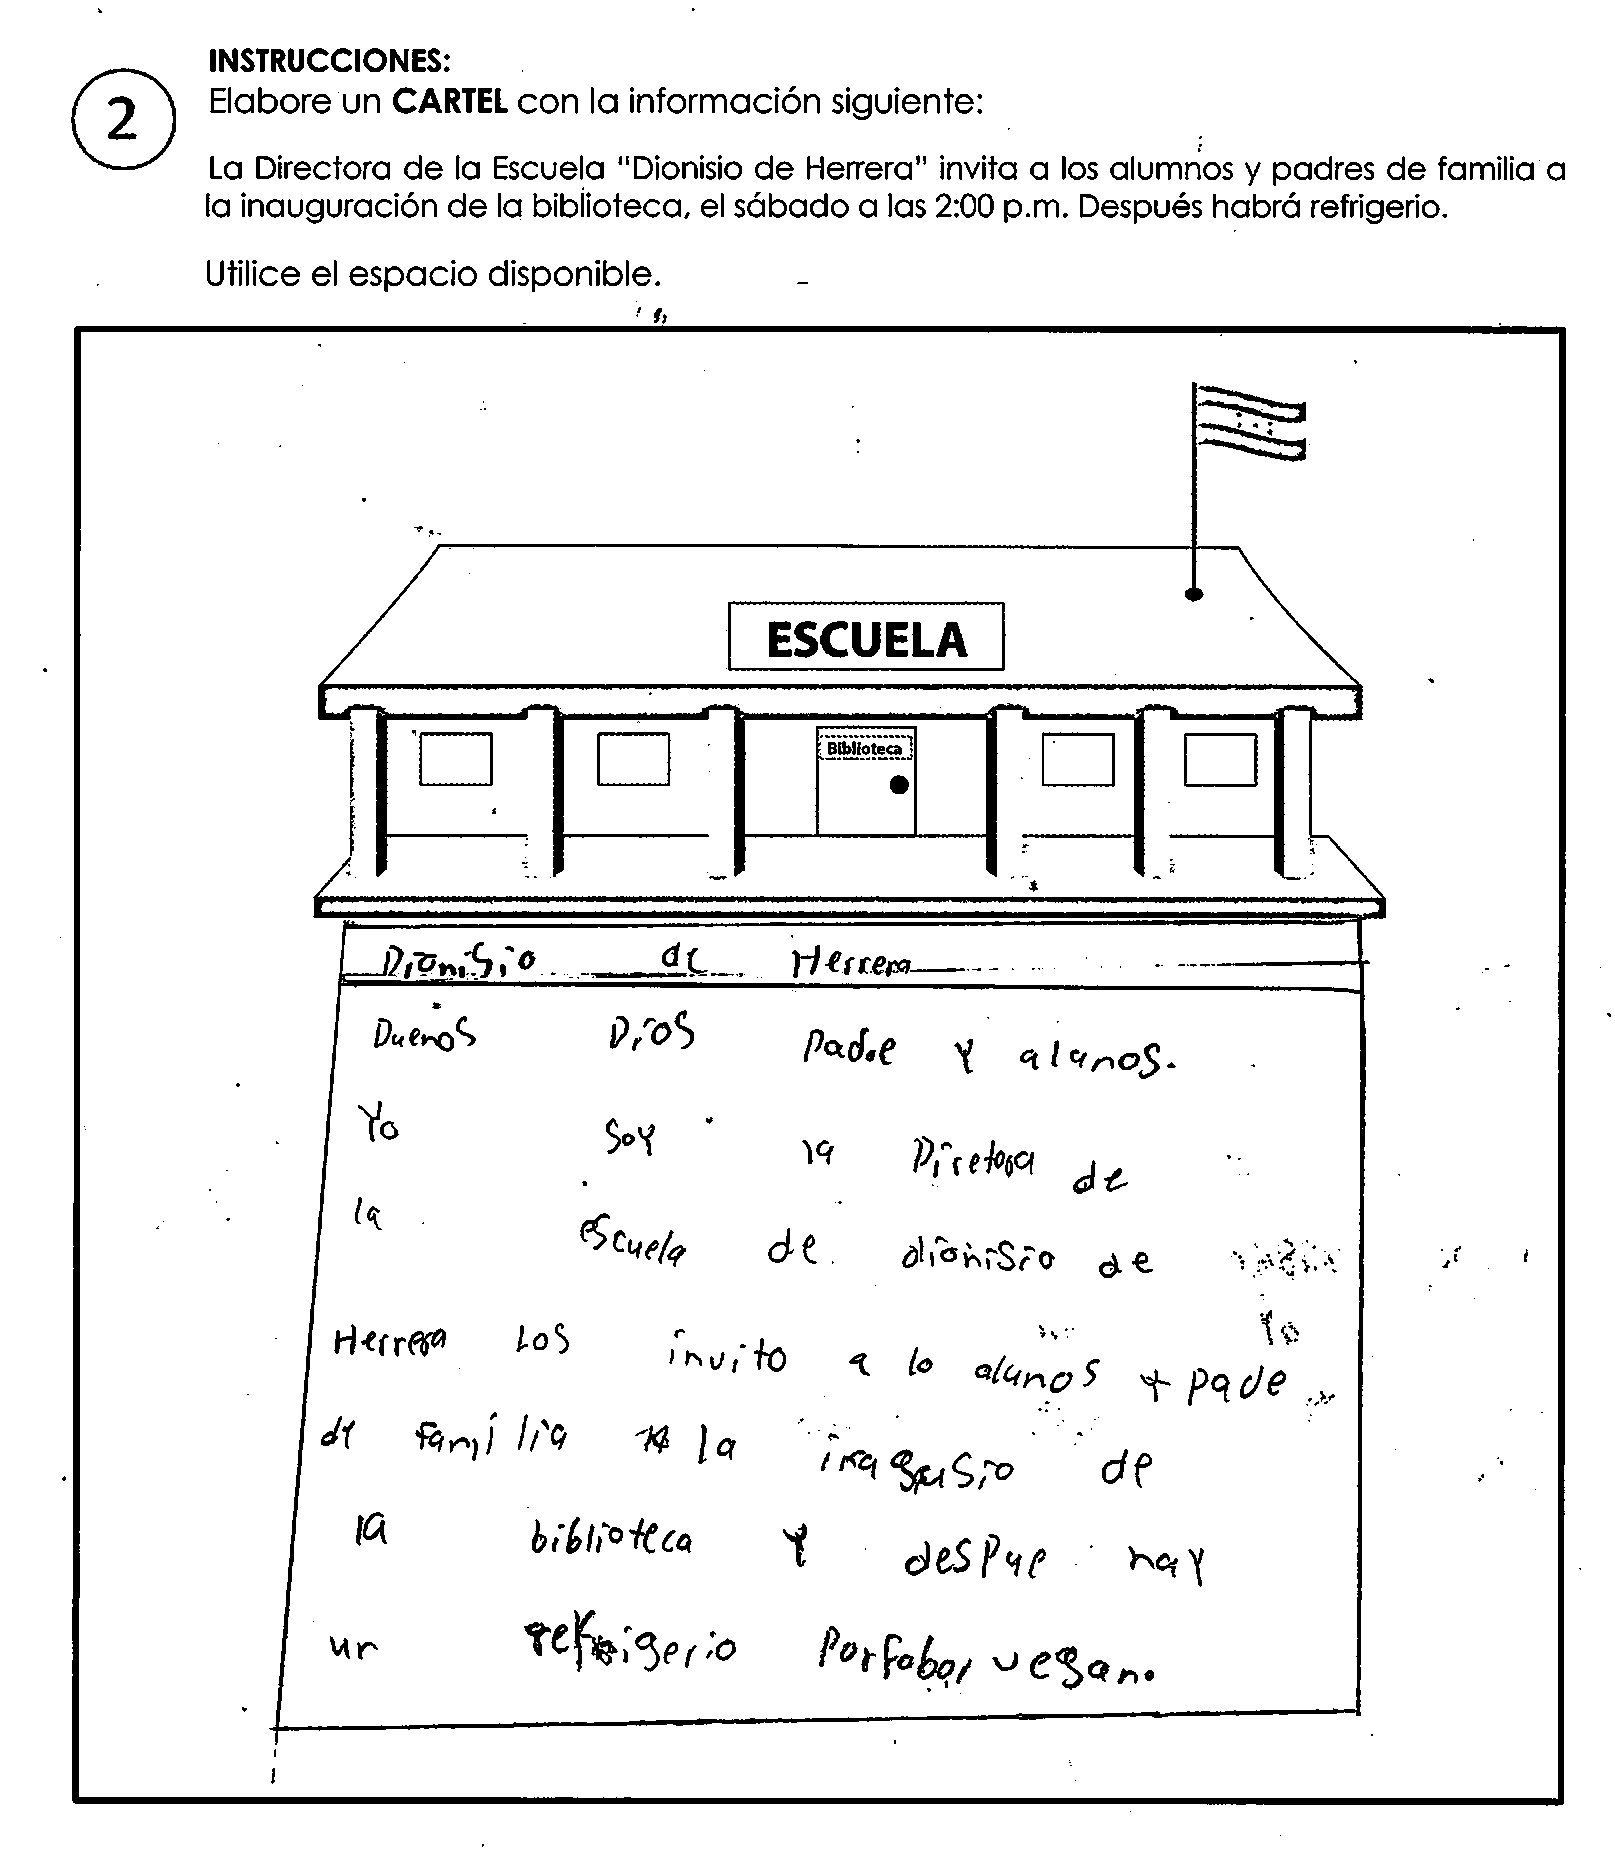 INSTRUCCIONES:
2
Elabore un CARTEL con la información siguiente:
La Directora de la Escuela "Dionisio de Herrera" invita a los alumnos y padres de familia a
la inauguración de la biblioteca, el sábado a las 2:00 p.m. Después habrá refrigerio.
Utilice el espacio disponible.
ESCUELA
Biblioteca
Dionisio de Herrera
Duenos Dios Padre y alanos.
Yo soy la Diretora de
la escuela de dionisio de
Herrera Los invito a lo alunos y pade
de familia la inagusio de
la biblioteca y despue hay
un refrigerio Porfabor vegan.